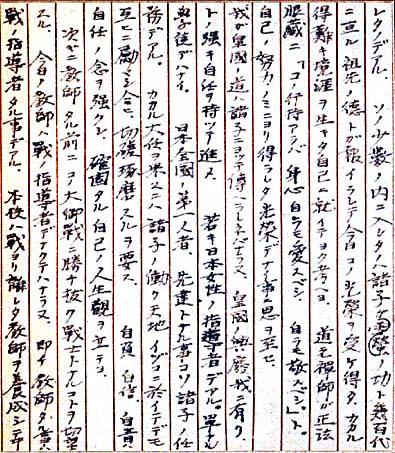 レタノデアル。ソノ少数ノ内ニ入レタハ諸子ノ奮螢ノ功ト幾百代
ニ亙ル祖先ノ徳トガ報イラレテ今日コノ光榮ヲ受ケ得タ、カカル
得難キ境涯ヲ生キタ自己ニ就イテヨク考ヘヨ 道元禪師ガ正法
眼藏ニ「コノ行持アラバ身心自ラモ愛スベシ 自ラモ敬フベシ」ト。
自己ノ努力ノミニヨリ得ラレタ光榮デナイ事ニ思ヲ至セ。
我ガ皇國ノ道ハ諸子ニヨッテ傳ヘラレネバナラヌ、皇國ノ興廢我ニ有リ、
トノ強キ自任ヲ持ッテ進メ 若キ日本女性ノ指導者デアル。單ナル
學徒デハナイ。日本全國ノ第一人者、先達トナル事コソ諸子ノ任
務デアル。カカル大任ヲ果スニハ諸子ノ働ク天地イヅコニ於イテデモ
互ヒニ勵マシ合ヒ、切磋琢磨スルヲ要ス 自負 自信 自責
自任ノ念ヲ強クシ、確固タル自己ノ人生觀ヲ立テヨ。
次ギニ教師タル前ニコノ大御戰ニ勝チ抜ク戰士トナルコトヲ切望
スル 今日ノ教師ハ戰ノ指導者デナクテハナラヌ 即チ教師タ
戰ノ指導者タル事デアル。本校ハ戰ヨリ離レタ教師ヲ養成シテ